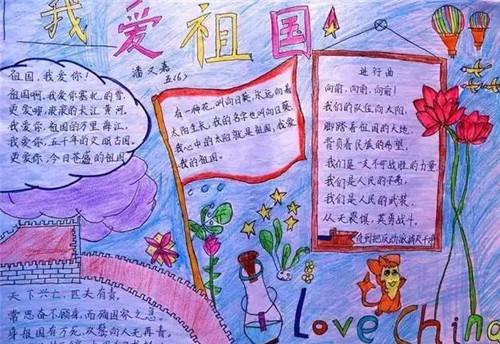 我爱祖国
潘又嘉
五(6)
祖国,我爱你!
祖国啊,我爱你塞北的雪,
更爱哪滚滚的大江黄河,
我爱你,祖国的万里海江,
我爱你,五千年的文明古国,
更爱你,今日苍盛的祖国.
有一种花,叫向日葵,永远向着
太阳生长,我的名字也叫向日葵
我心中的太阳就是祖国,我爱
我的祖国.
进行曲
向前,向前,向前!
我们的队伍向太阳,
脚踏着祖国的大地,
背负着民族的希望,
我们是一支不可战胜的力量
我们是人民的子弟,
我们是人民的武装,
从无畏惧,英勇战斗,
直到把反动派消灭干净
天下兴亡,匹夫有责,
常思奋不顾身,而殉国家之急.
身祖国有万死,双鬓向人无再青.
Love China